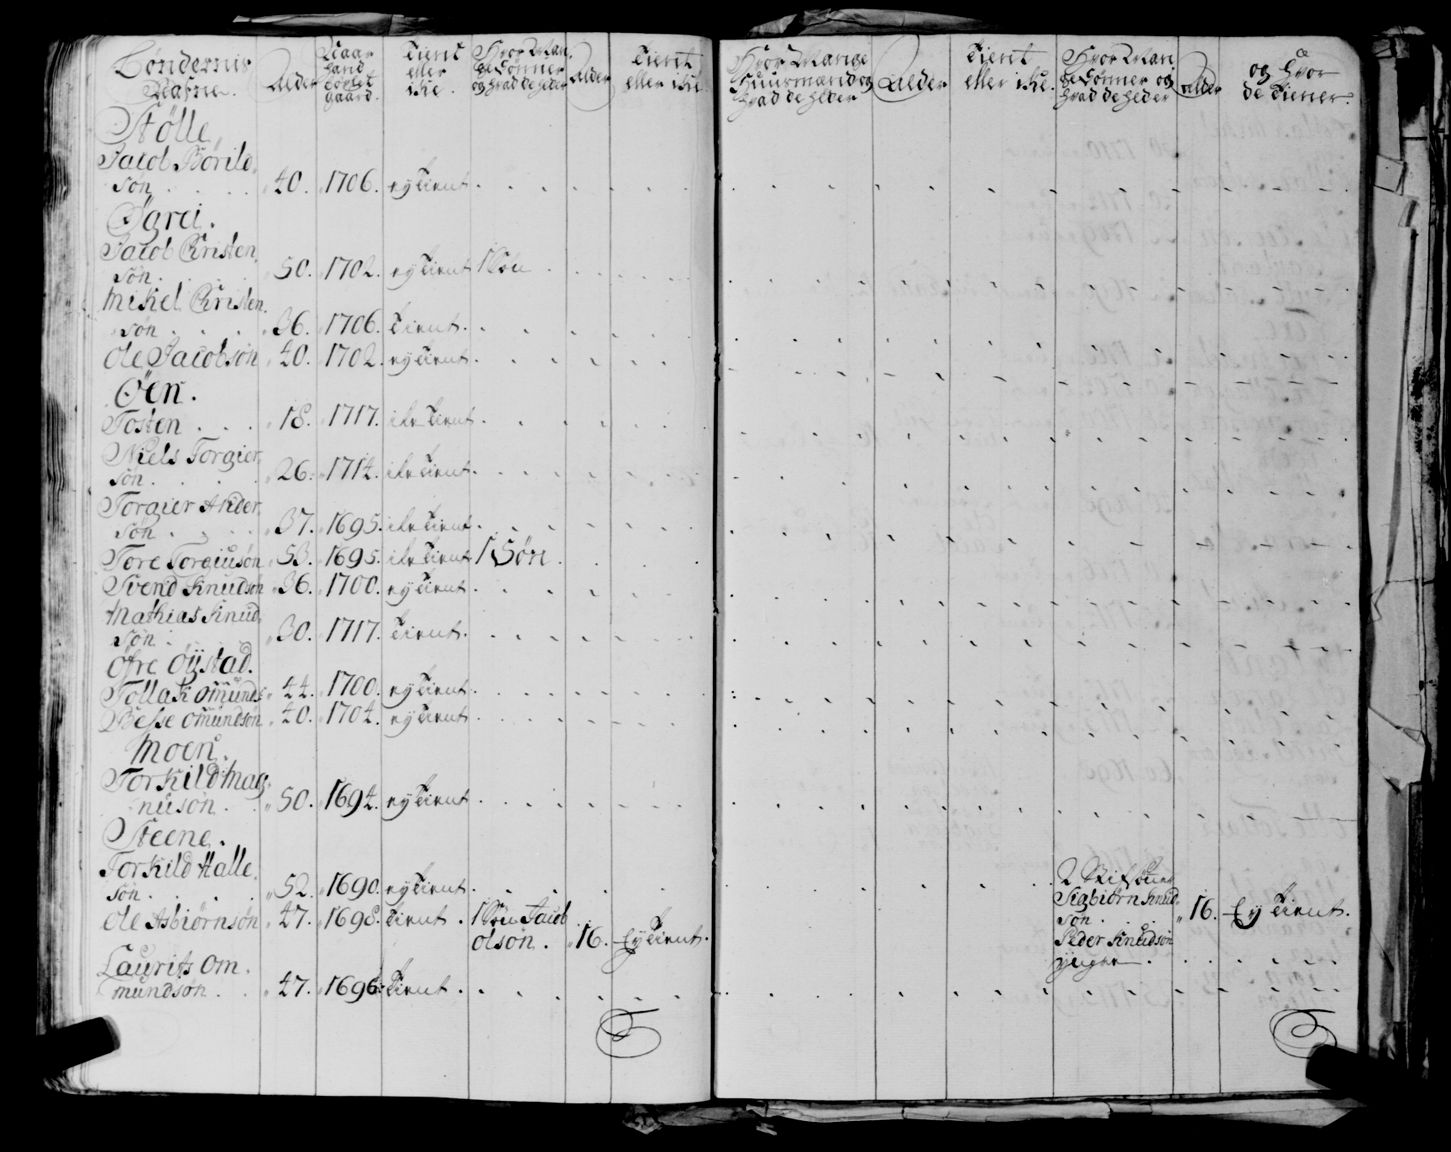 Bøndernis
Nafne.
Alder
Naar
hand
tog ist
gaard.
Tient
eller
ike.
Hvor Man
ge Sønner
og hvad de heder
Alder
Tient
eller ike
Hvor Mange
Huusmænd og
hvad de heder
Alder
Tient
eller ike.
Hvor Man
ge Sønner og
hvad de heder
Alder
og hvor
de Tiener.
Stølle
Jacob Børild
søn 40. 1706. ey Tient
Øgrei.
Jacob Christen
søn. 50. 1702. ey Tient 1 Søn
Mikel Christen
søn 36. 1706. Tient.
Ole Jacobsøn 40. 1702. ey Tient.
Øen.
Tosten 18. 1717. ike Tient
Niels Torgier
søn 26. 1714. ike Tient.
Torgier Ander
søn 37. 1695. ike Tient.
Tore Torgiusøn 53. 1695. ike Tient 1 Søn
Svend Knudsøn 36. 1700. ey Tient
Mathias Knud
søn 30. 1717. Tient.
Øfre Øystad.
Tollak Omunds 44. 1700. ey Tient
Besse Omundsøn 40. 1704. ey Tient
Moen.
Torkild Mag
nusøn 50. 1694. ey Tient
Steene.
Torkild Halle
søn. 52. 1690. ey Tient
2
Sigbiørn Knud
Ole Asbiørnsøn 47. 1698. Tient. 1 Søn Jacob
søn 16. Ey Tient.
olson. 16. Ey Tient.
Peder Knudsøn
yngre
Laurits Om
mundsøn 47. 1696. Tient.